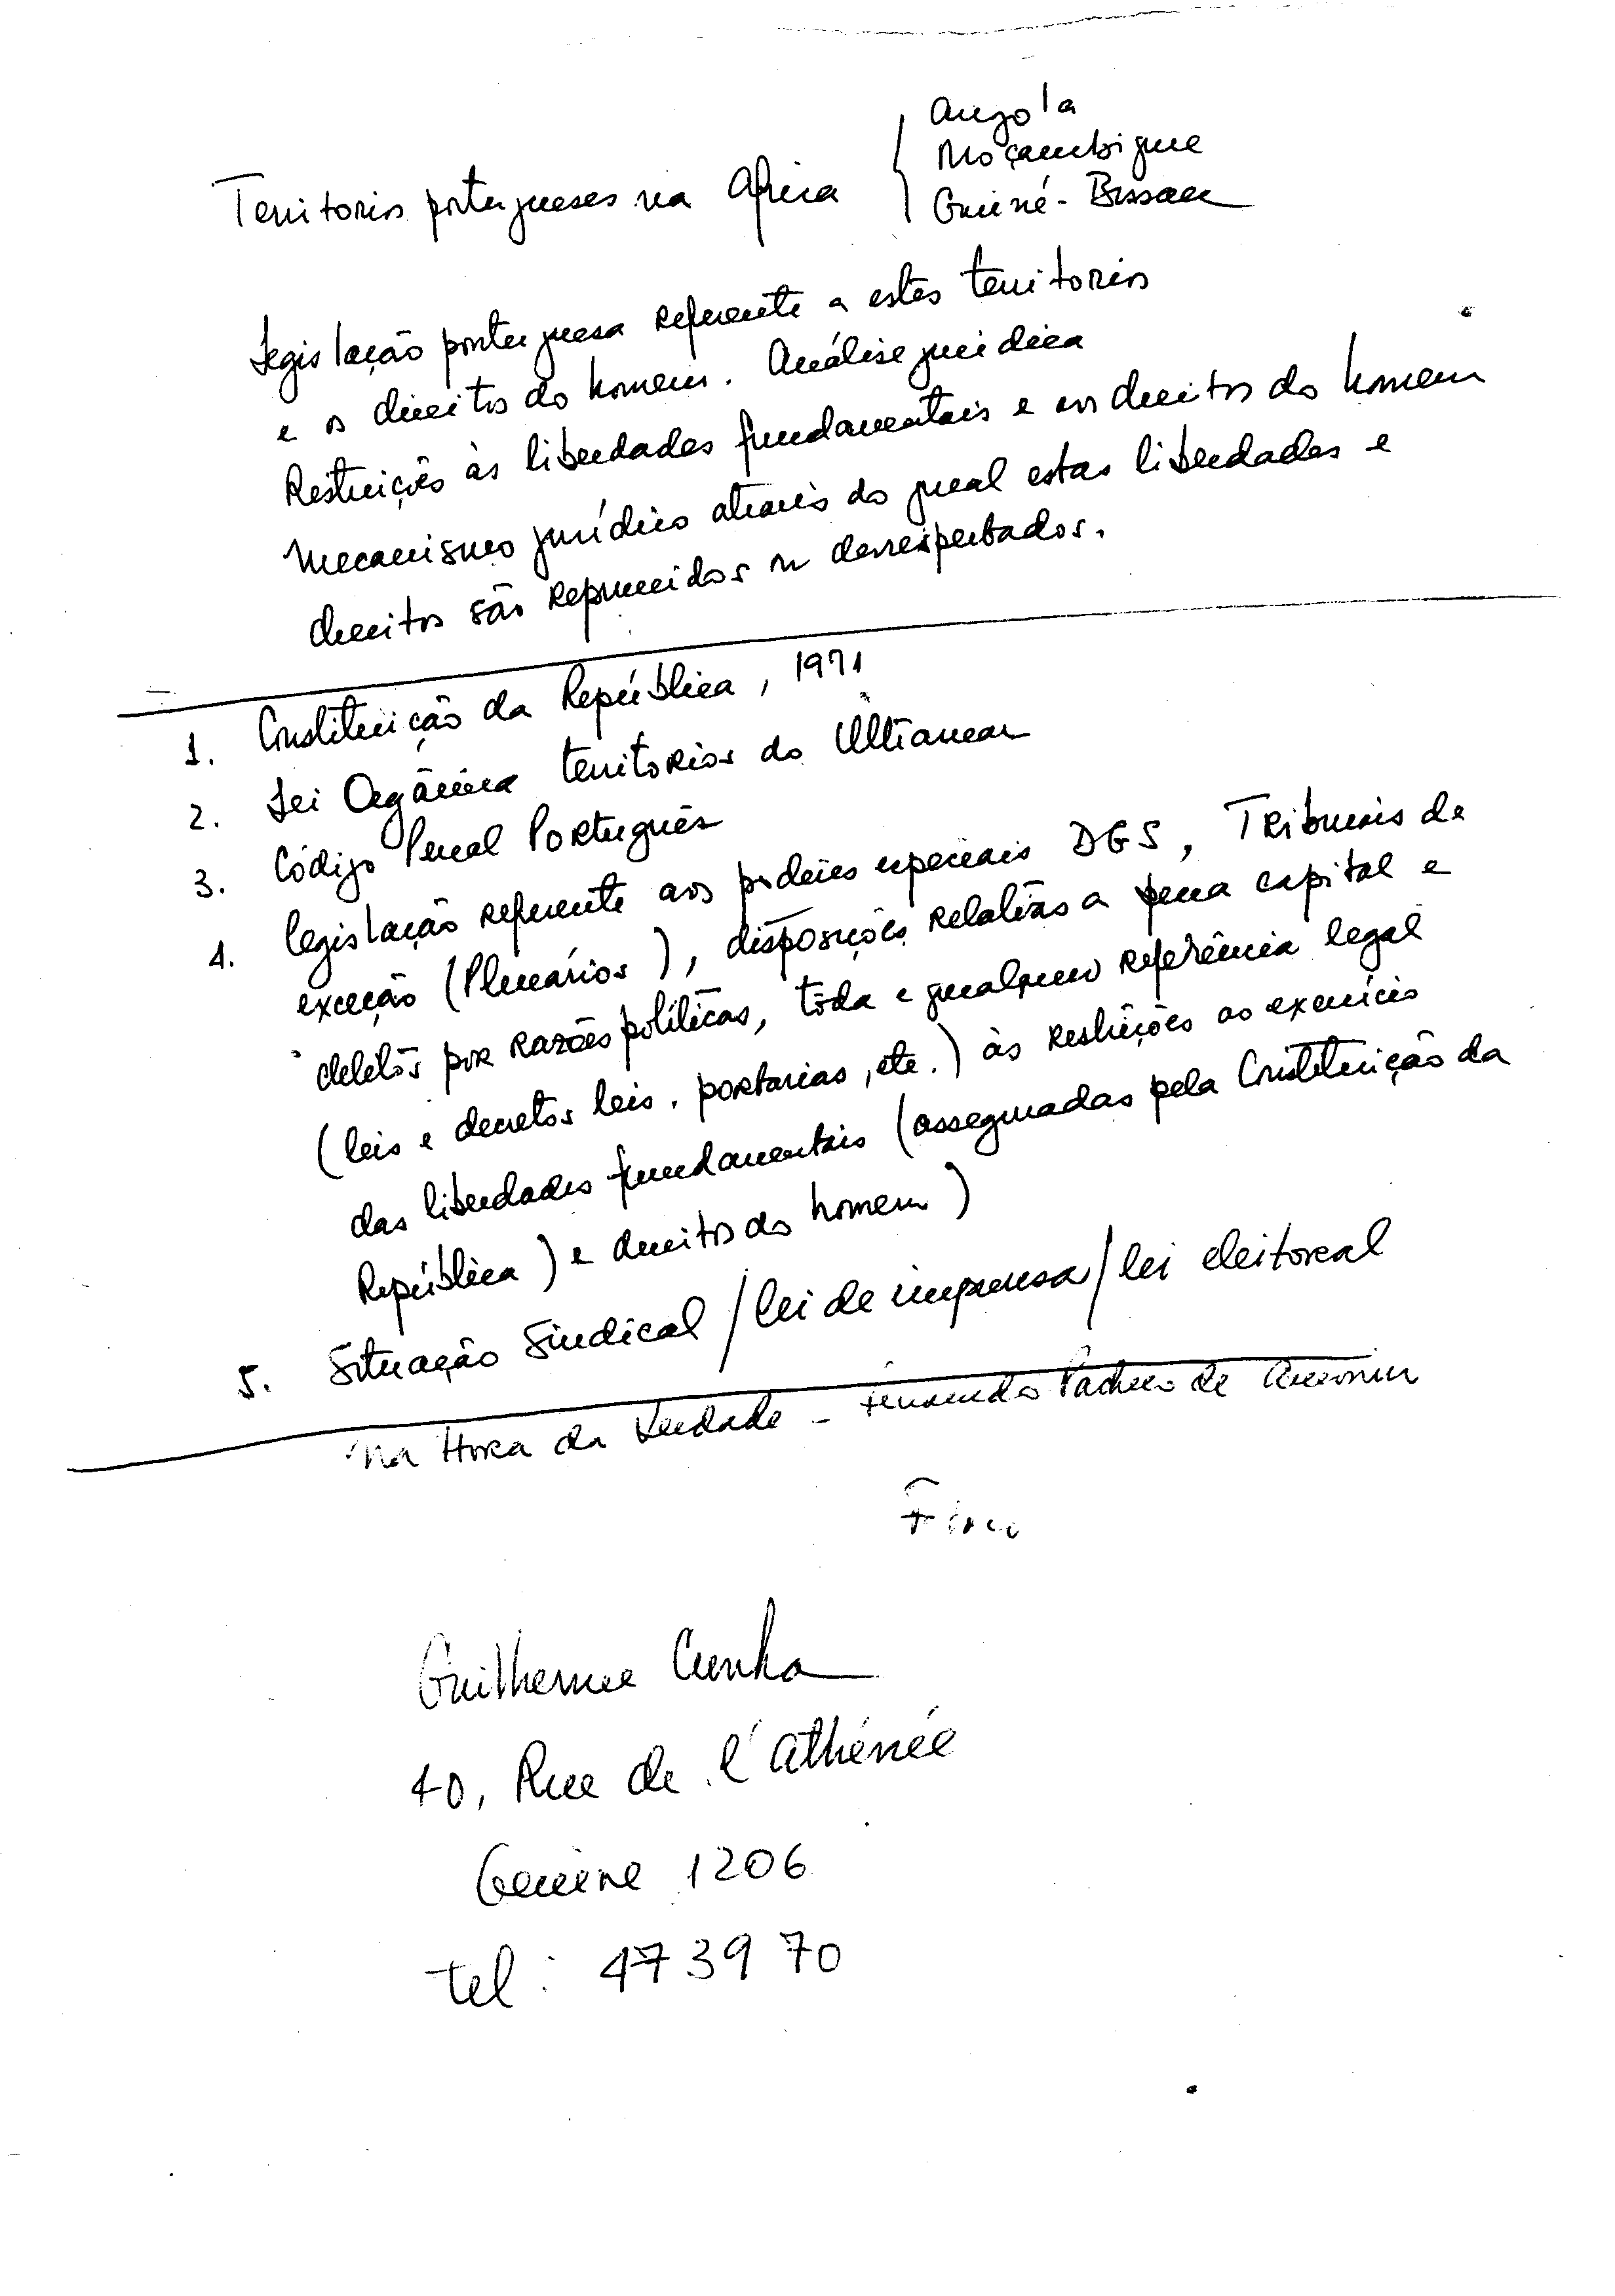 Territorios portugueses na Africa { Angola
Moçambique
Guiné-Bissau
Legislação portuguesa referente a estes territorios
e os direitos do homem. Análise juridica
Restrições às liberdades fundamentais e aos direitos do homem
Mecanismo jurídico através do qual estas liberdades e
direitos são reprimidos ou desrespeitados.
1. Constituição da República, 1971
2. Lei Orgânica territorios do Ultramar
3. Código Penal Português
4. legislação referente aos poderes especiais DGS, Tribunais de
exceção (Plenários), disposições relativas a pena capital e
delitos por razões políticas, toda e qualquer referência legal
(leis e decretos leis, portarias, etc.) às restrições ao exercício
das liberdades fundamentais (asseguradas pela Constituição da
República) e direitos do homem)
5. Situação Sindical / lei de imprensa / lei eleitoral
Na Hora da Verdade - Fernando Pacheco de Amorim
Guilherme Cunha
40, Rue de l'Athénée
Genève 1206
tel: 47 39 70